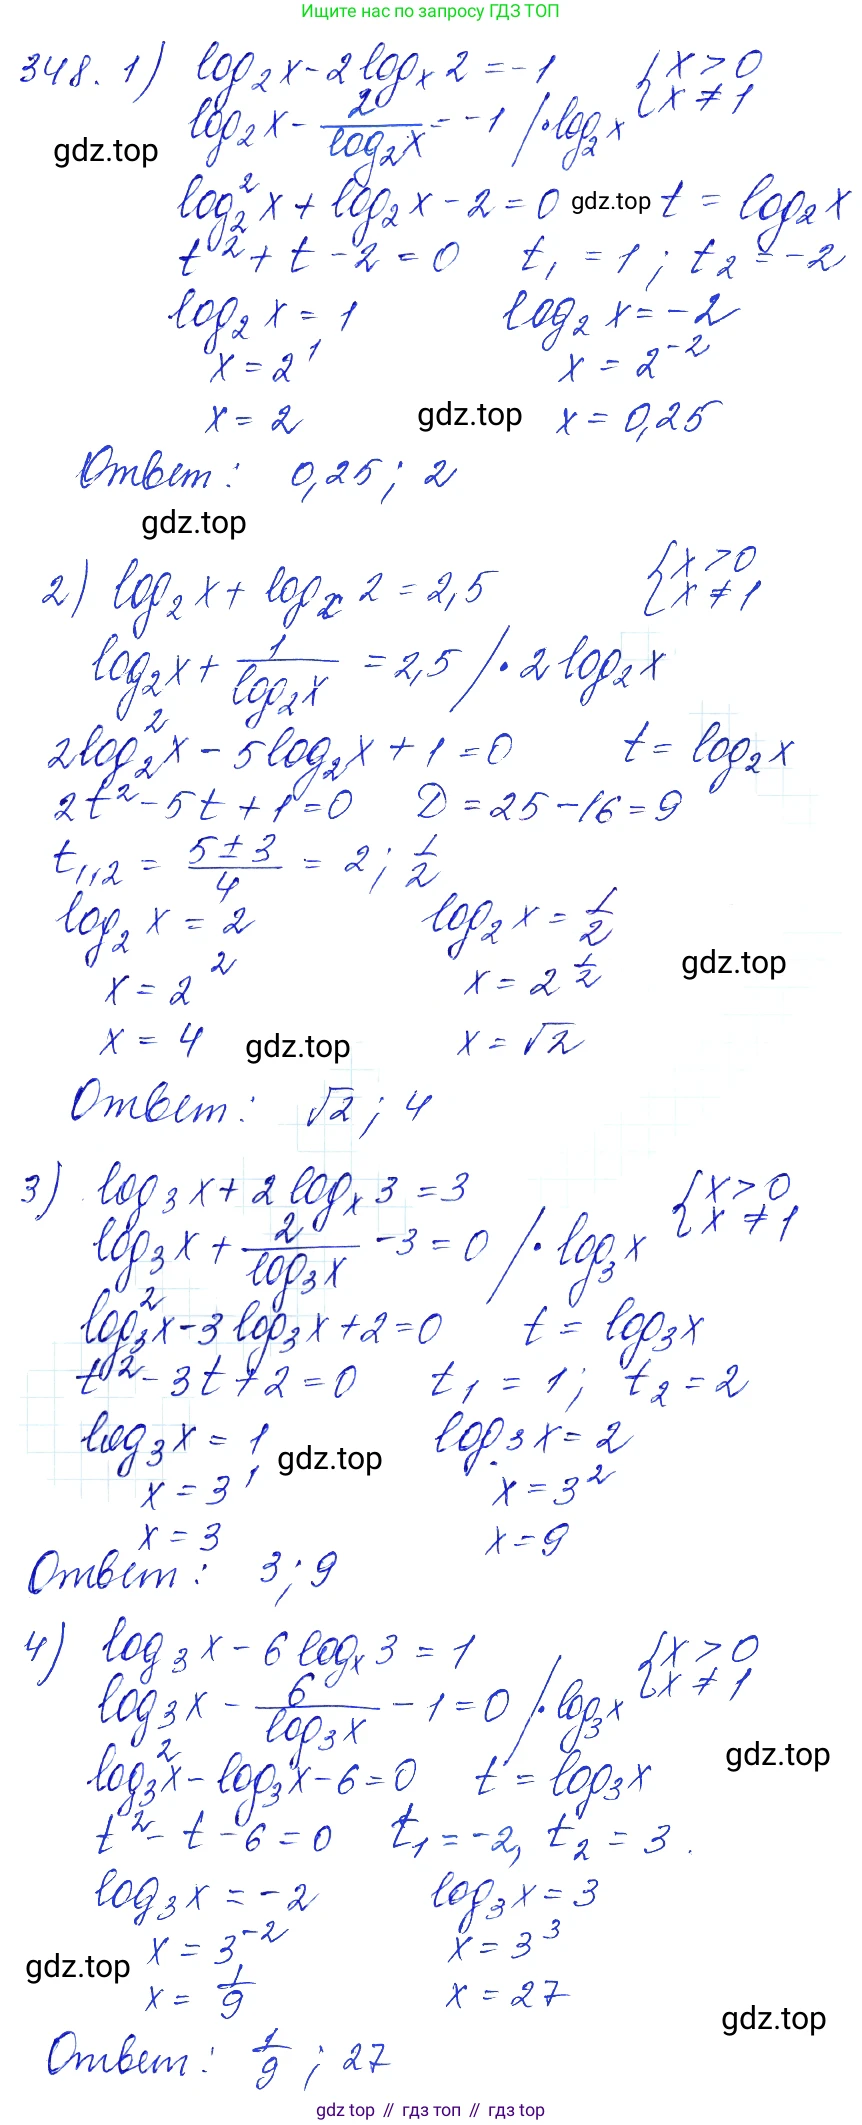 Ищите нас по запросу ГДЗ ТОП
348. 1) log₂x - 2logₓ2 = -1 {x > 0
{x ≠ 1
log₂x - 2/log₂x = -1 /·log₂x
gdz.top
log₂²x + log₂x - 2 = 0 gdz.top t = log₂x
t² + t - 2 = 0 t₁ = 1; t₂ = -2
log₂x = 1 log₂x = -2
x = 2¹ x = 2⁻²
x = 2 gdz.top x = 0,25
Ответ: 0,25; 2
gdz.top
2) log₂x + logₓ2 = 2,5 {x > 0
{x ≠ 1
log₂x + 1/log₂x = 2,5 /·2log₂x
2log₂²x - 5log₂x + 1 = 0 t = log₂x
2t² - 5t + 1 = 0 D = 25 - 16 = 9
t₁,₂ = (5 ± 3)/4 = 2; 1/2
log₂x = 2 log₂x = 1/2
gdz.top
x = 2² x = 2^(1/2)
x = 4 gdz.top x = √2
Ответ: √2; 4
3) log₃x + 2logₓ3 = 3 {x > 0
{x ≠ 1
log₃x + 2/log₃x - 3 = 0 /·log₃x
log₃²x - 3log₃x + 2 = 0 t = log₃x
t² - 3t + 2 = 0 t₁ = 1; t₂ = 2
log₃x = 1 gdz.top log₃x = 2
x = 3¹ x = 3²
x = 3 x = 9
Ответ: 3; 9
4) log₃x - 6logₓ3 = 1 {x > 0
{x ≠ 1
log₃x - 6/log₃x - 1 = 0 /·log₃x
gdz.top
log₃²x - log₃x - 6 = 0 t = log₃x
t² - t - 6 = 0 t₁ = -2, t₂ = 3.
log₃x = -2 log₃x = 3
x = 3⁻² x = 3³
gdz.top
x = 1/9 x = 27
gdz.top
Ответ: 1/9; 27
gdz.top // гдз топ // gdz.top